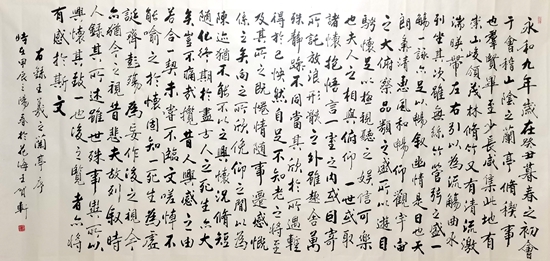 永和九年歲在癸丑暮春之初會
于會稽山陰之蘭亭脩稧事
也群賢畢至少長咸集此地有
崇山峻領茂林脩竹又有清流激
湍暎帶左右引以為流觴曲水
列坐其次雖無絲竹管弦之盛一
觴一詠亦足以暢敘幽情是日也天
朗氣清惠風和暢仰觀宇宙
之大俯察品類之盛所以遊目
騁懷足以極視聽之娛信可樂
也夫人之相與俯仰一世或取
諸懷抱悟言一室之內或因寄
所託放浪形骸之外雖趣舍萬
殊靜躁不同當其欣於所遇輒
得於己怏然自足不知老之將至
及其所之既惓情隨事遷感慨
係之矣向之所欣俛仰之間以為
陳迹猶不能不以之興懷況脩短
隨化終期於盡古人云死生亦大
矣豈不痛哉每攬昔人興感之由
若合一契未嘗不臨文嗟悼不
能喻之於懷固知一死生為虛
誕齊彭殤為妄作後之視今
亦猶今之視昔悲夫故列敘時
人錄其所述雖世殊事異所以
興懷其致一也後之覽者亦將
有感於斯文
右錄王羲之蘭亭序
時在甲辰之陽春於花海